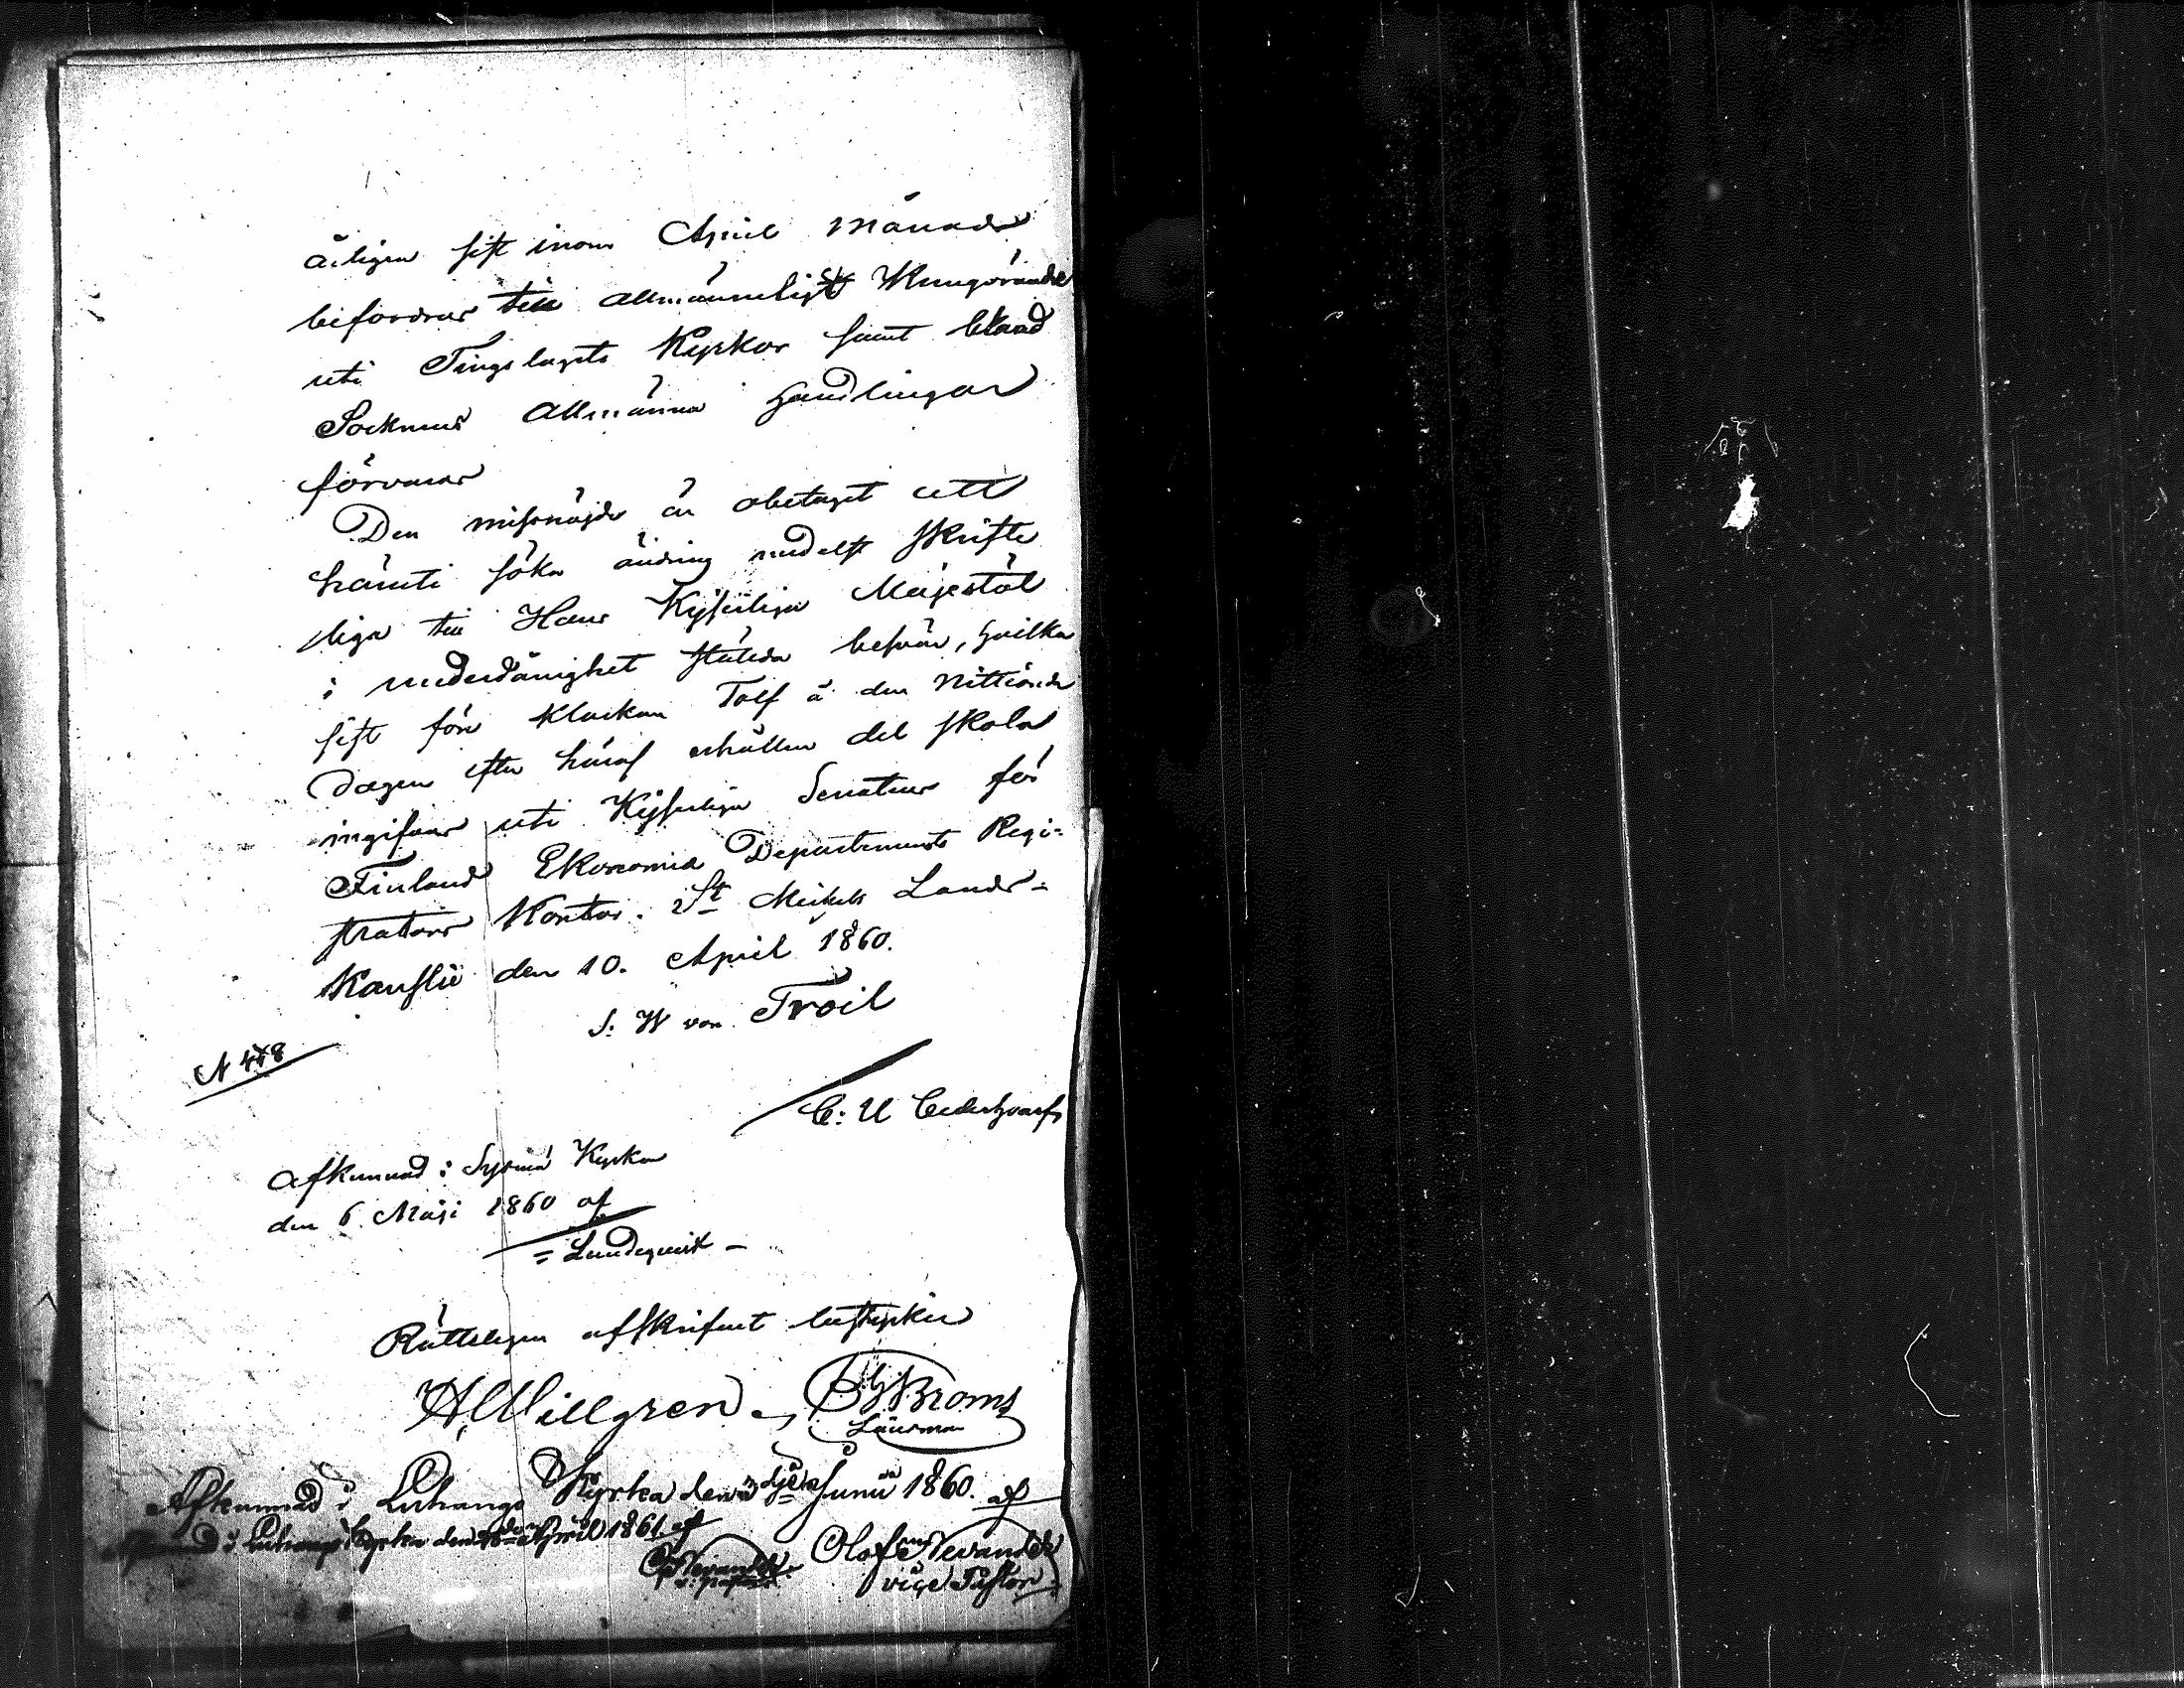 årligen sist inom April månad
befordras till allmänneligt Kungörande
uti Tingslagets Kyrkor samt bland
Socknens Allmänna Handlingar
förvaras
Den missnöjde är obetaget att
häruti söka ändring medelst skrifte
liga till Hans Kejserliga Majestät
i underdånighet stälda besvär, hvilka
sist före Klockan Tolf å den Nittionde
dagen efter häraf erhållen del skola
ingifvas uti Kejserliga Senatens för
Finland Ekonomie Departements Regi=
strators Kontor. St Michels Lands=
Kansli den 10. April 1860.
S: W von Troil
N 448
C: U Cederhvarf
Afkunnad i Sysmä Kyrka
den 6 Maji 1860 af
= Lundeqvist -
Rätteligen afskrifvet bestyrker
A Willgren. Broms
Länsman
Afkunnad i Luhango Kyrka den 3dje Junii 1860. af
i Luhango Kyrka den April 1861 af
Olof Nevander
v: pastor
vice Pastor